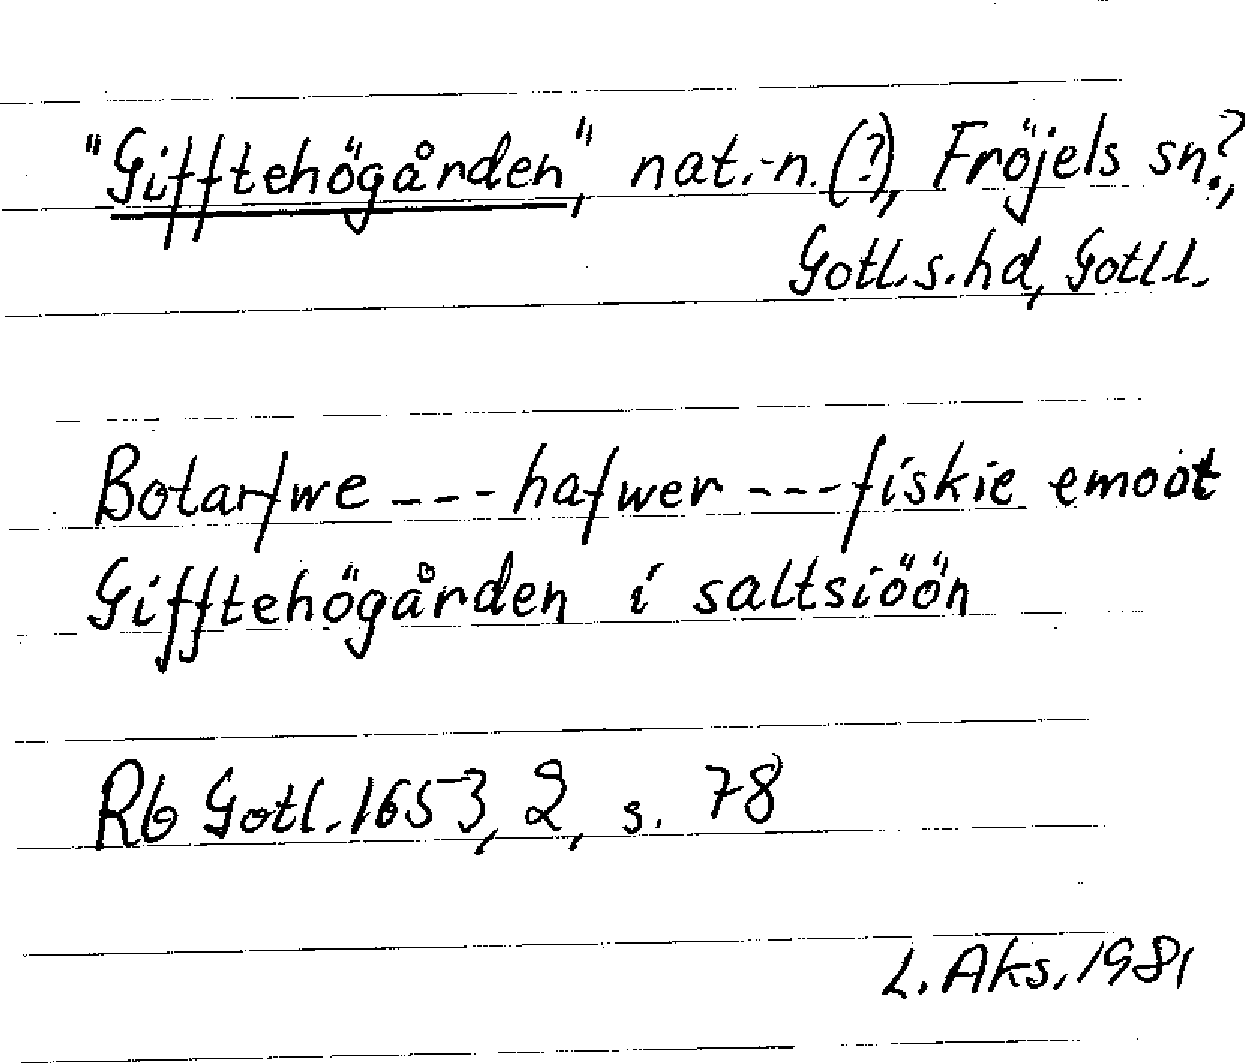 "Gifftehögården", nat.-n. (?), Fröjels sn?,
Gotl. s. hd, Gotl. l.
Botarfwe --- hafwer --- fiskie emoot
Gifftehögården i saltsiöön
Rb Gotl. 1653, 2, s. 78
L. Aks. 1981